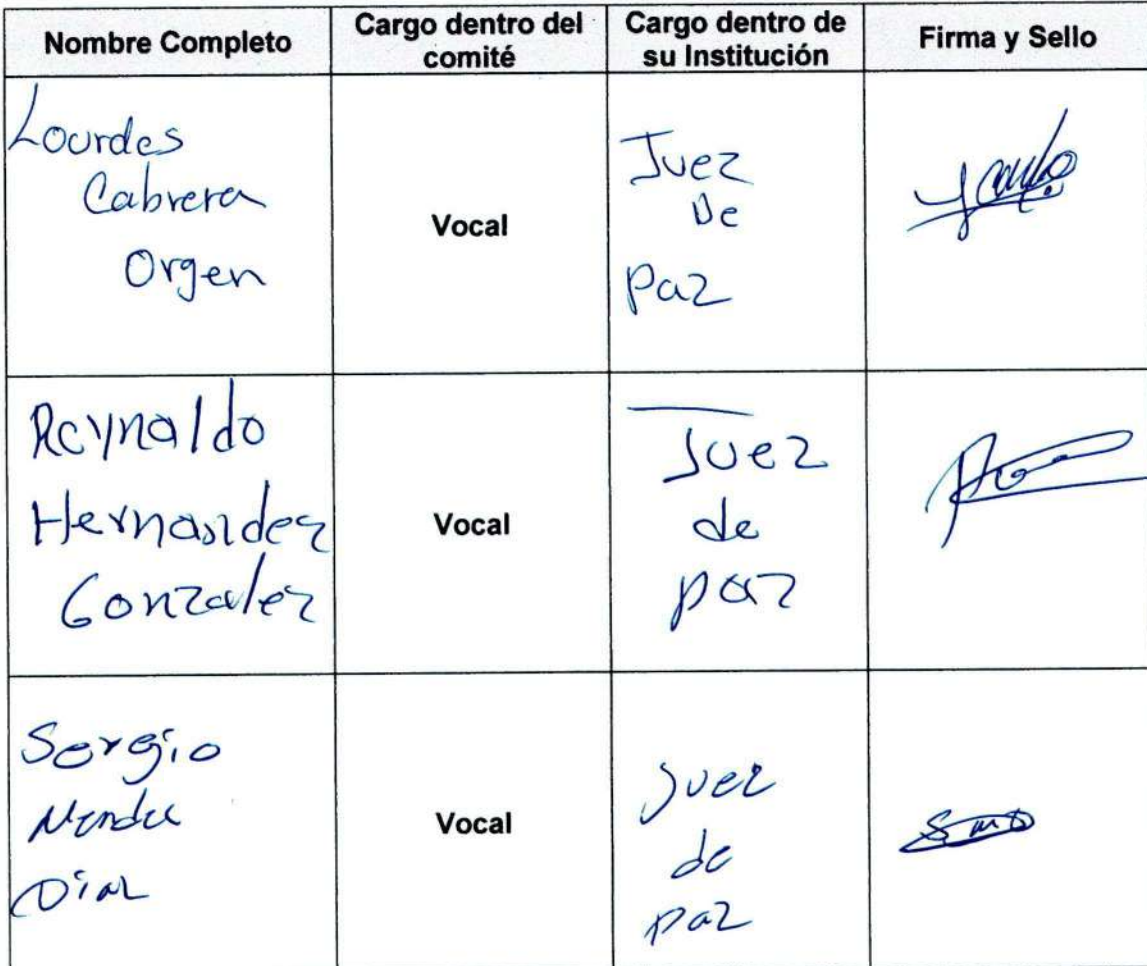 Nombre Completo
Cargo dentro del
comité
Cargo dentro de
su Institución
Firma y Sello
Lourdes
Cabrera
Orgen
Vocal
Juez
De
Paz
Reynaldo
Hernandez
Gonzalez
Vocal
Juez
de
paz
Sergio
Diaz
Vocal
Juez
de
paz